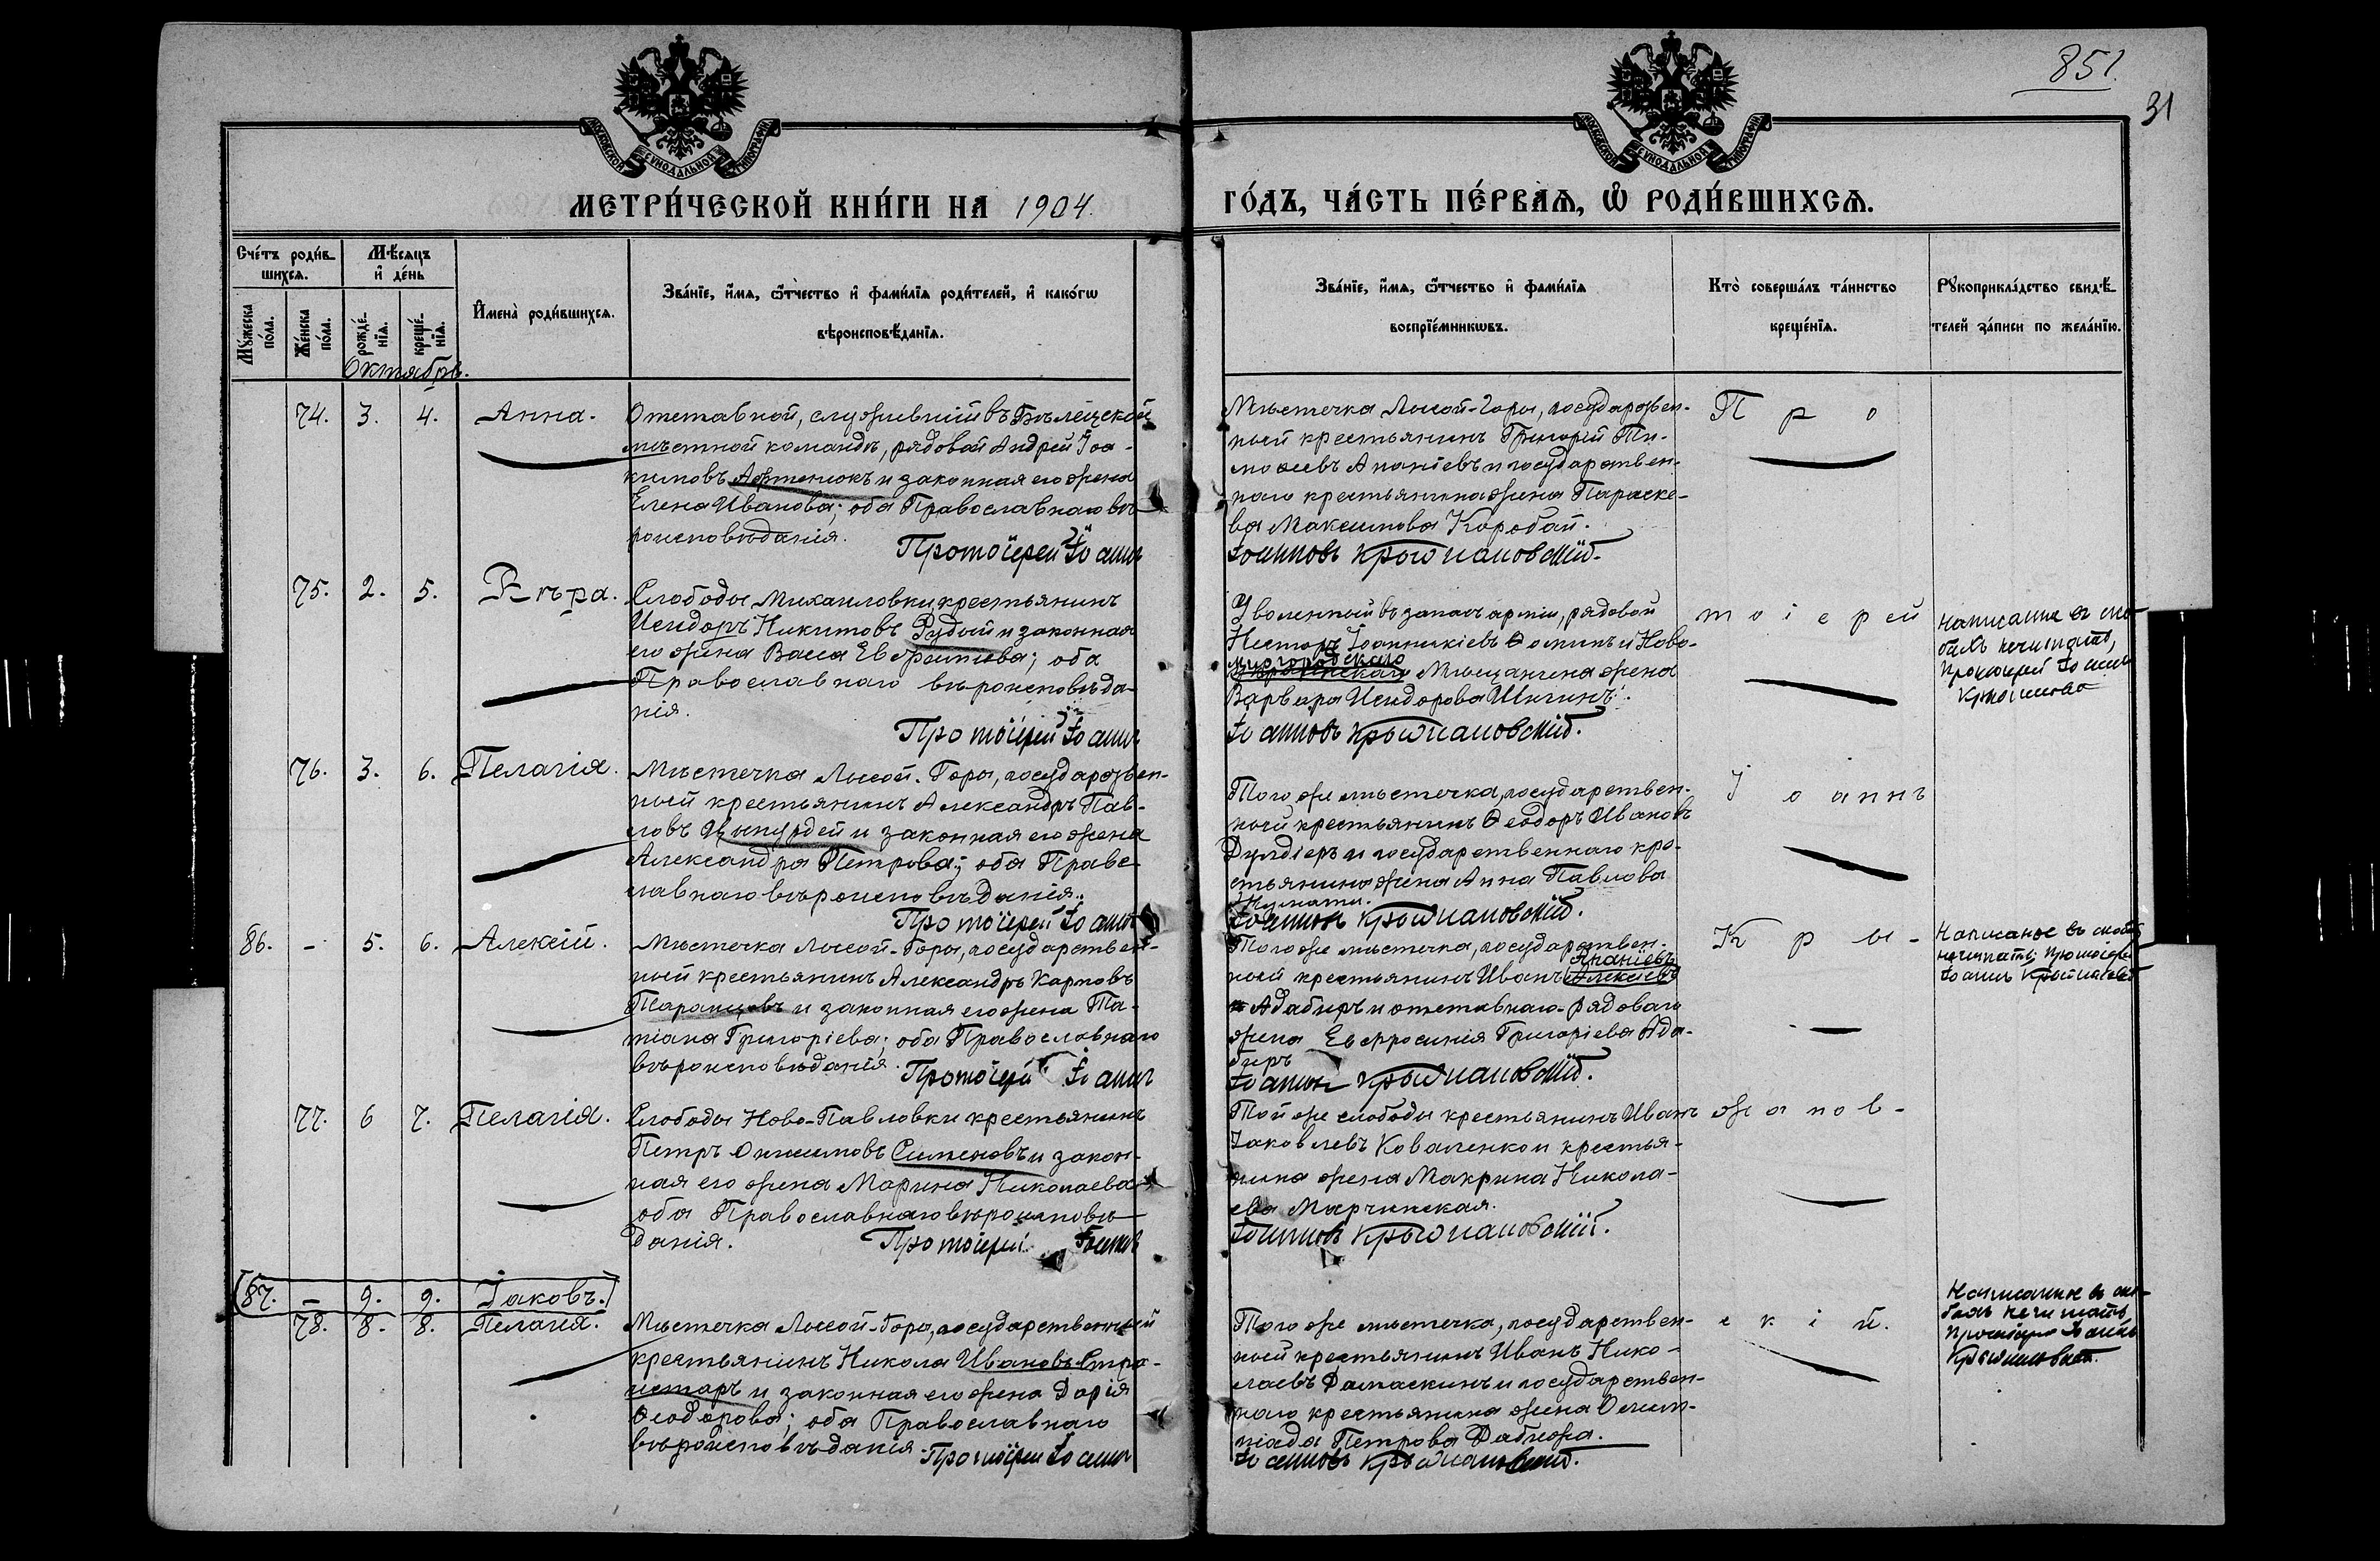 851.
31
МОСКОВСКОЙ СУНОДАЛЬНОЙ ТИПОГРАФІИ
МОСКОВСКОЙ СУНОДАЛЬНОЙ ТИПОГРАФІИ
МЕТРИ́ЧЕСКОЙ КНИ́ГИ НА 1904.
ГО́ДЪ, ЧА́СТЬ ПЕ́РВАѦ, Ѡ РОДИ́ВШИХСѦ.
Сче́тъ роди́в-
шихсѧ.
Мѣсѧцъ
и҆ де́нь
Мꙋ́жеска
по́ла.
Же́нска
по́ла.
рожде́-
нїѧ.
креще́-
нїѧ.
И҆мена̀ роди́вшихсѧ.
Зва́нїе, и҆́мѧ, ѻ҆́тчество и҆ фами́лїѧ роди́телей, и҆ како́гѡ
вѣроисповѣ́данїѧ.
Зва́нїе, и҆́мѧ, ѻ҆́тчество и҆ фами́лїѧ
воспрїе́мникѡвъ.
Кто̀ соверша́лъ та́инство
креще́нїѧ.
Рꙋкоприкла́дство свидѣ́-
телей за́писи по жела́нїю.
Октябрь.
74. 3. 4. Анна.
Отставной, служившій въ Бѣлецкой
мѣстной командѣ, рядовой Андрей Іоа-
кимовъ Артенюкъ и законная его жена
Елена Иванова; оба Православнаго вѣ-
роисповѣданія.
Протоіерей Іоаннъ
Мѣстечка Лысой-Горы, государствен-
ный крестьянинъ Григорій Ти-
моѳеевъ Ананіевъ и государствен-
наго крестьянина жена Параске-
ва Максимова Коробай.
Іоанновъ Крыжановскій.
П р о
75. 2. 5. Вѣра.
Слободы Михаиловки, крестьянинъ
Исидоръ Никитовъ Рудый и законная
его жена Васса Евфимiева; оба
Православнаго вѣроисповѣда-
нія.
Протоіерей Іоаннъ
Уволенный въ запасъ арміи, рядовой
Несторъ Іоанникіевъ Ѳоминъ и Ново-
миргородскаго
Мѣщанина жена
Варвара Исидорова
Іоанновъ Крыжановскій.
т о і е р е й
Написанное въ ско-
бахъ не читать,
Протоіерей Іоаннъ
76. 3. 6. Пелагія.
Мѣстечка Лысой-Горы, государствен-
ный крестьянинъ Александръ Пав-
ловъ и законная его жена
Александра Петрова; оба Право-
славнаго вѣроисповѣданія.
Протоіерей Іоаннъ
Того же мѣстечка, государствен-
ный крестьянинъ Ѳеодоръ Ивановъ
и государственнаго кре-
стьянина жена Анна Павлова
Іоаннъ Крыжановскій.
І о а н н ъ
86. - 5. 6. Алексій.
Мѣстечка Лысой-Горы, государствен-
ный крестьянинъ Александръ Карповъ
Таранцовъ и законная его жена Та-
тіана Григоріева; оба Православнаго
вѣроисповѣданія.
Протоіерей Іоаннъ
Того же мѣстечка, государствен-
Ананіевъ
ный крестьянинъ Иванъ Алексіевъ
Адабиръ и отставнаго рядоваго
жена Евфросинія Григоріева Ада-
биръ
Іоаннъ Крыжановскій.
К р ы -
Написаное въ скобкѣ
не читать; Протоіерей
Іоаннъ Крыжановскій
77. 6 7. Пелагія.
Слободы Ново-Павловки крестьянинъ
Петръ Онисимовъ Сименовъ и закон-
ная его жена Марина Николаева
оба Православнаго вѣроисповѣ-
данія.
Протоіерей Іоаннъ
Той же слободы крестьянинъ Иванъ
Іаковлевъ Коваленко и крестья-
нина жена Макрина Никола-
ева Марчинская.
Іоанновъ Крыжановскій.
ж а н о в -
87. - 9. 9. Іаковъ.
78. 8. 8. Пелагія.
Мѣстечка Лысой-Горы, государственный
крестьянинъ Никола Ивановъ Стра-
истарь и законная его жена Дарія
Ѳеодорова; оба Православнаго
вѣроисповѣданія.
Протоіерей Іоаннъ
Того же мѣстечка, государствен-
ный крестьянинъ Иванъ Нико-
лаевъ Дамаскинъ и государствен-
наго крестьянина жена Олим-
піада Петрова Дабижа.
Іоанновъ Крыжановскій.
с к і й.
Написанное въ ско-
бахъ не читать
Протоіерей Іоаннъ
Крыжановскій.